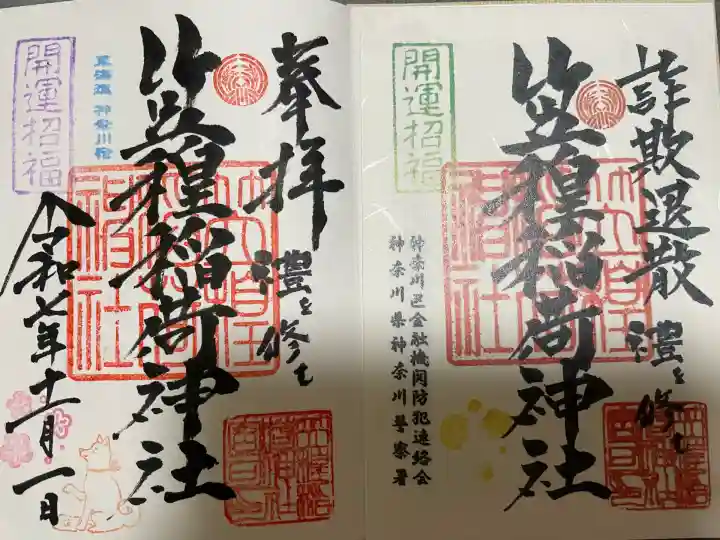 奉拝
禮を修む
笠䅣稲荷神社
東海道 神奈川宿
開運招福
令和七年十一月一日
詐欺退散
禮を修む
笠䅣稲荷神社
開運招福
神奈川区金融機関防犯連絡会
神奈川県神奈川警察署